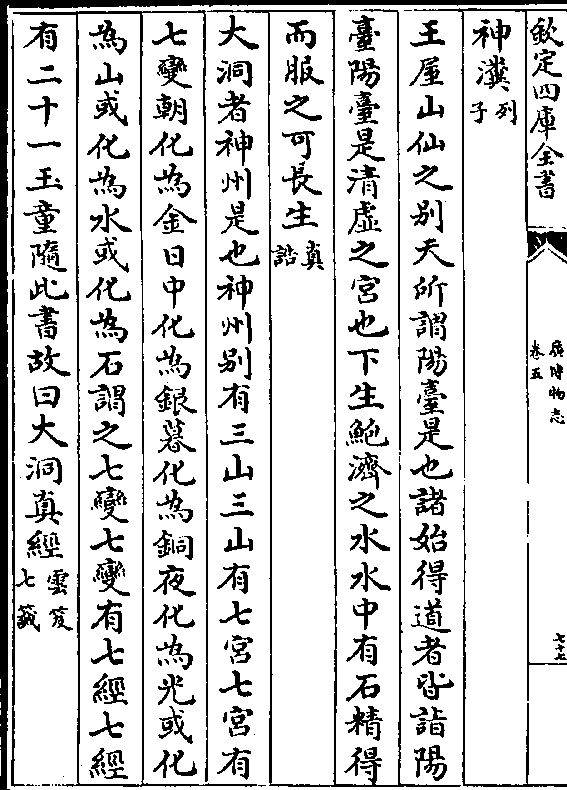 欽定四庫全書
廣博物志
卷五
七十七
神瀵列子
王屋山仙之别天所謂陽臺是也諸始得道者皆詣陽
臺陽臺是清虛之宮也下生鮑濟之水水中有石精得
而服之可長生真誥
大洞者神州是也神州别有三山三山有七宮七宮有
七變朝化為金日中化為銀暮化為銅夜化為光或化
為山或化為水或化為石謂之七變七變有七經七經
有二十一玉童隨此書故曰大洞真經雲笈七籤